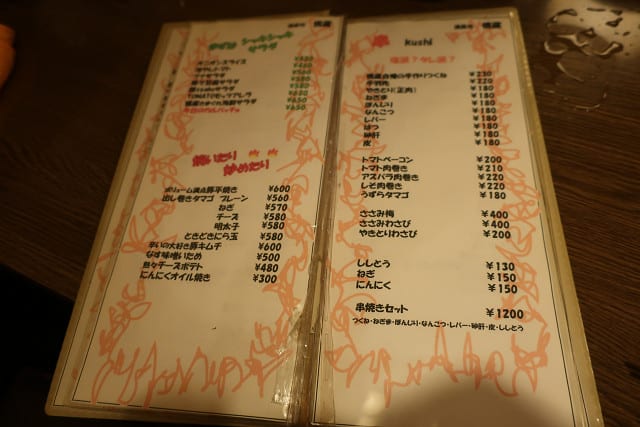 シャキシャキ
サラダ
オニオンスライス
冷やしトマト
ツナサラダ
¥650
¥650
焼いたり
炒めたり
ボリューム満点豚平焼き ¥600
出し巻きタマゴ プレーン ¥560
ねぎ ¥570
チーズ ¥580
明太子 ¥580
ときどきにら玉 ¥580
辛いの大好き豚キムチ ¥600
なす味噌いため ¥500
熱々チーズポテト ¥480
にんにくオイル焼き ¥300
串 kushi
塩派?タレ派?
¥230
¥220
やきとり(正肉) ¥180
ねぎま ¥180
ぼんじり ¥180
なんこつ ¥180
レバー ¥180
はつ ¥180
砂肝 ¥180
皮 ¥180
トマトベーコン ¥200
トマト肉巻き ¥210
アスパラ肉巻き ¥220
しそ肉巻き ¥220
うずらタマゴ ¥180
ささみ梅 ¥400
ささみわさび ¥400
やきとりわさび ¥200
ししとう ¥130
ねぎ ¥150
にんにく ¥150
串焼きセット ¥1200
つくね・ねぎま・ぼんじり・なんこつ・レバー・砂肝・皮・ししとう